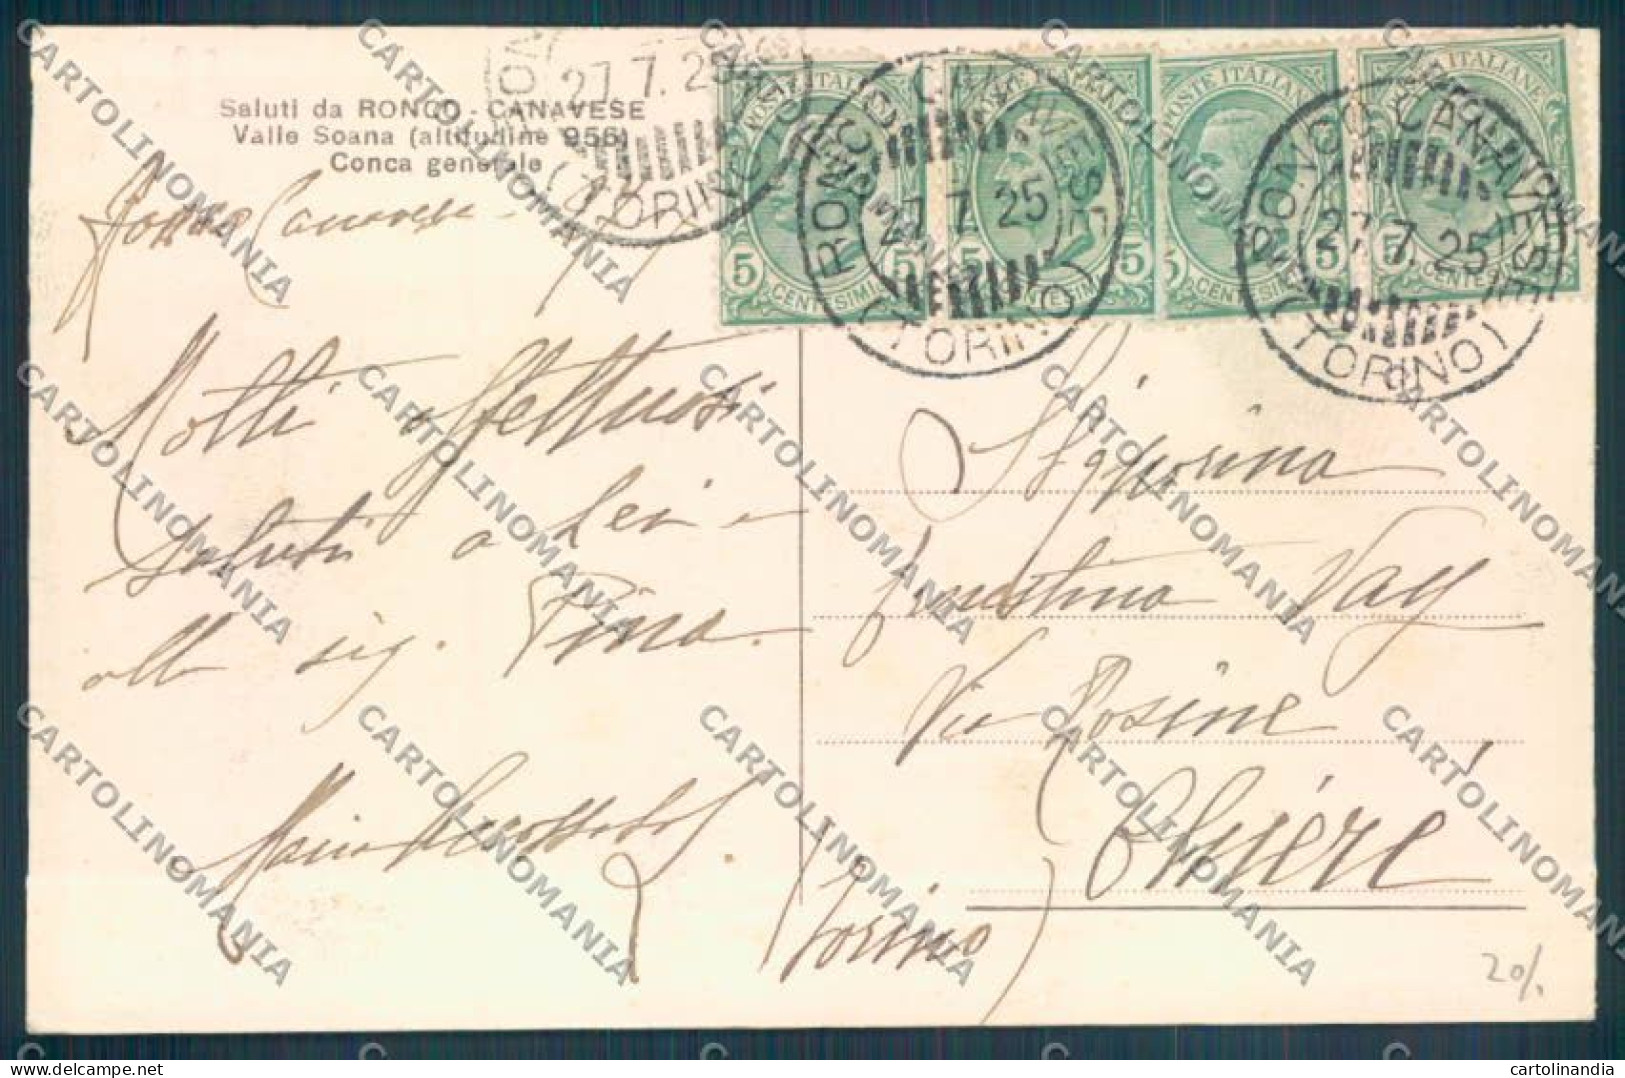 Saluti da RONCO - CANAVESE
Valle Soana (altitudine 956)
Conca generale
Canavese
Molti affettuosi
saluti a Lei e
alla sig. Pina.
Maria
POSTE ITALIANE
5 CENTESIMI 5
POSTE ITALIANE
5 CENTESIMI 5
POSTE ITALIANE
5 CENTESIMI 5
POSTE ITALIANE
5 CENTESIMI 5
RONCO CANAVESE
27.7.25
(TORINO)
RONCO CANAVESE
27.7.25
(TORINO)
RONCO CANAVESE
27.7.25
(TORINO)
Signorina
Faustina Vay
Via Rosine,
Chieri
(Torino)
20/.
CARTOLINOMANIA
cartolinandia